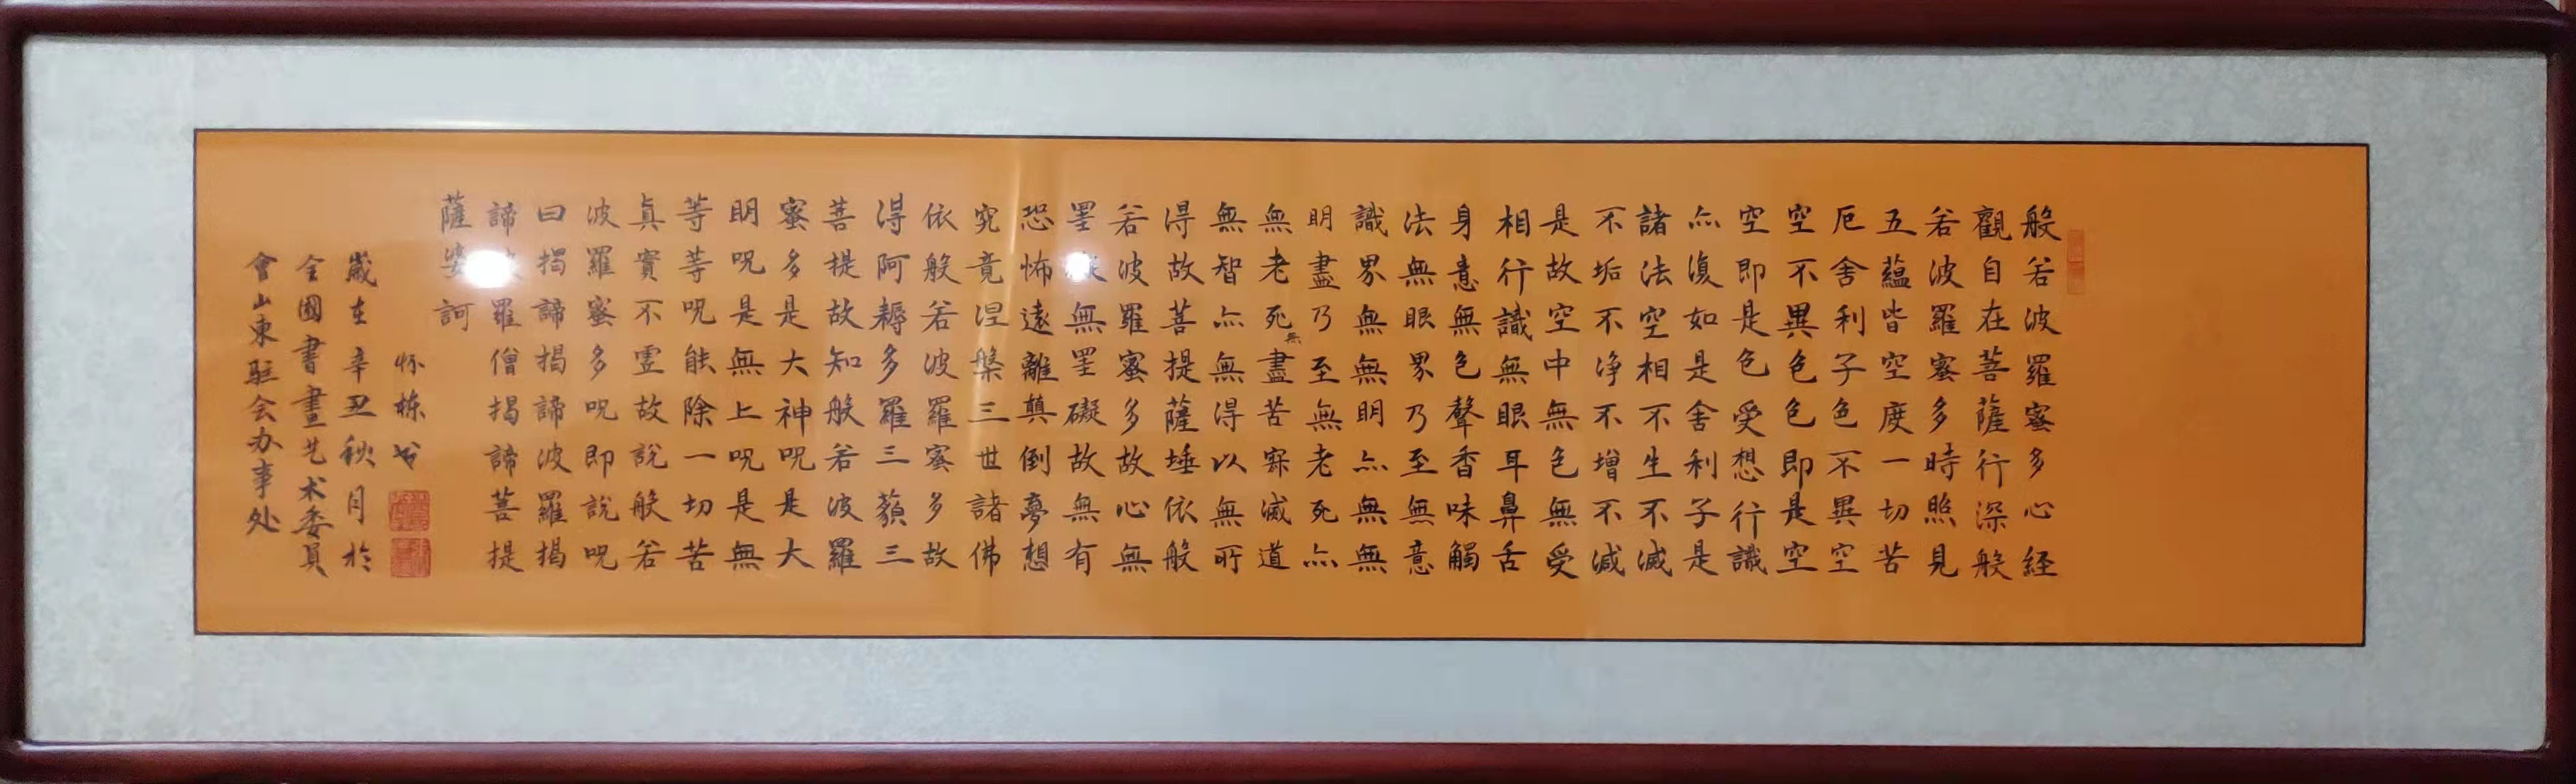 般若波羅蜜多心経
觀自在菩薩行深般
若波羅蜜多時照見
五蘊皆空度一切苦
厄舍利子色不異空
空不異色色即是空
空即是色受想行識
亦復如是舍利子是
諸法空相不生不滅
不垢不净不增不減
是故空中無色無受
相行識無眼耳鼻舌
身意無色聲香味觸
法無眼界乃至無意
識界無無明亦無無
明盡乃至無老死亦
無老死無盡苦寂滅道
無智亦無得以無所
得故菩提薩埵依般
若波羅蜜多故心無
罣 無罣礙故無有
恐怖遠離顛倒夢想
究竟涅槃三世諸佛
依般若波羅蜜多故
得阿耨多羅三藐三
菩提故知般若波羅
蜜多是大神呪是大
明呪是無上呪是無
等等呪能除一切苦
真實不虚故說般若
波羅蜜多呪即說呪
曰揭諦揭諦波羅揭
諦 羅僧揭諦菩提
薩婆訶
怀栋书
歲在辛丑秋月於
全國書畫艺术委員
會山東駐会办事处